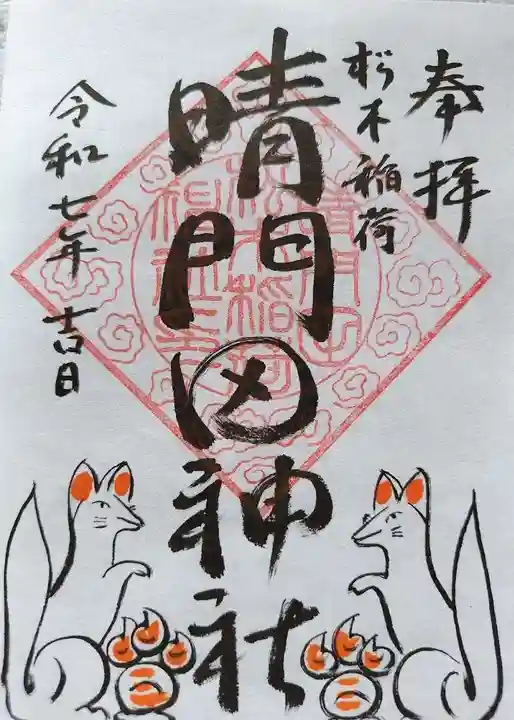 奉拝
朽木稲荷
晴門田神社
令和七年 吉日